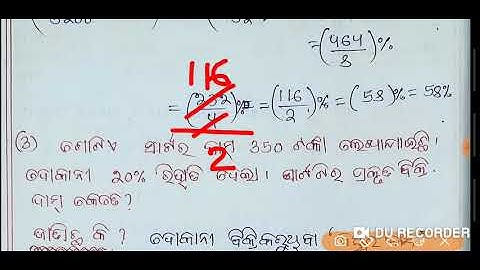 = (464/8)%
116
= (232/4)% = (116/2)% = (58)% = 58%
2
(3) ଗୋଟିଏ ସାର୍ଟର ଦାମ 350 ଟଙ୍କା ଲେଖାଯାଇଛି।
ଦୋକାନୀ 20% ରିହାତି ଦେଲା। ସାର୍ଟଟିର ପ୍ରକୃତ ବିକ୍ରି
ଦାମ୍ କେତେ?
ଜାଣିଛ କି? ଦୋକାନୀ ବିକ୍ରି କରୁଥିବା
DU RECORDER